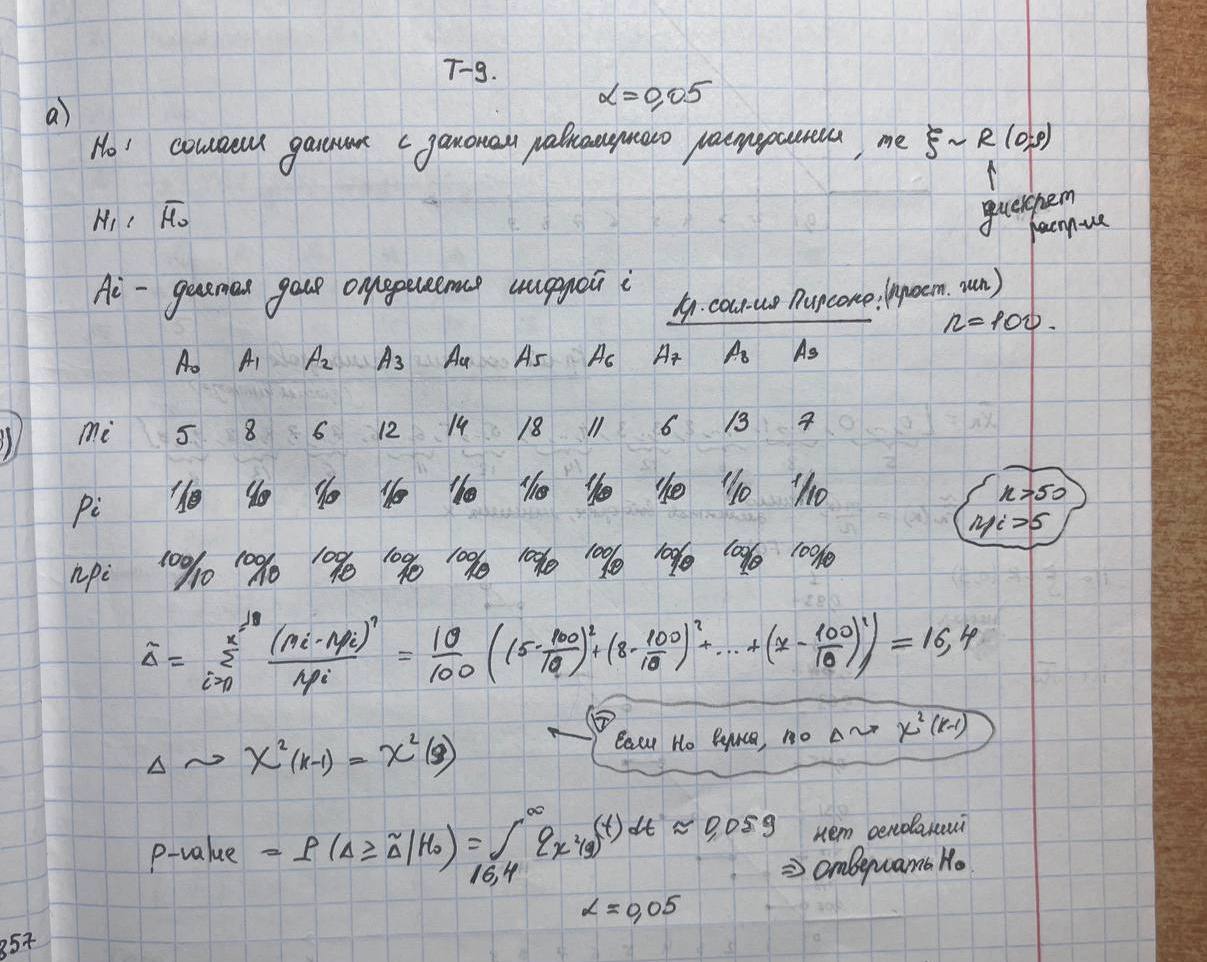 T-9.
α=0,05
а)
H₀: согласие данных с законом равномерного распределения, те ξ ~ R (0;9)
↑
дискрет
распр-ие
H₁: H̄₀
Ai - десятая доля определяется цифрой i
Кр. согл-ия Пирсона: (прост. гип)
n=100.
A₀ A₁ A₂ A₃ A₄ A₅ A₆ A₇ A₈ A₉
mi 5 8 6 12 14 18 11 6 13 7
pi 1/10 1/10 1/10 1/10 1/10 1/10 1/10 1/10 1/10 1/10
n>50
npi>5
npi 100/10 100/10 100/10 100/10 100/10 100/10 100/10 100/10 100/10 100/10
Δ̃ = Σ (mi-npi)²/npi = 10/100 ((5-100/10)²+(8-100/10)²+...+(7-100/10)²) = 16,4
Δ ⤳ χ²(k-1) = χ²(9)
← Ⓣ Если H₀ верна, то Δ ⤳ χ²(k-1)
p-value = P(Δ ≥ Δ̃ | H₀) = ∫₁₆,₄^∞ q_χ²(9)(t) dt ≈ 0,059 нет оснований
⇒ отвергать H₀.
α=0,05
357